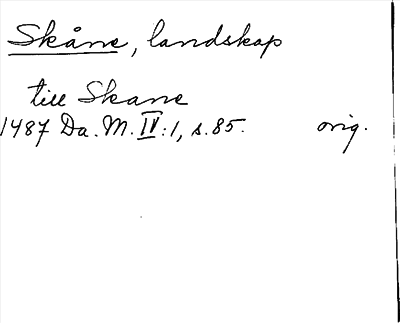 Skåne, landskap
till Skane
1487 Da. M. IV:1, s. 85. orig.